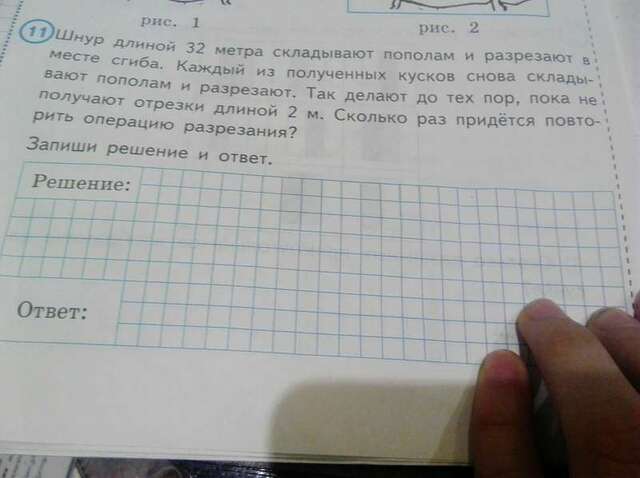 рис. 1
рис. 2
11 Шнур длиной 32 метра складывают пополам и разрезают в
месте сгиба. Каждый из полученных кусков снова склады-
вают пополам и разрезают. Так делают до тех пор, пока не
получают отрезки длиной 2 м. Сколько раз придётся повто-
рить операцию разрезания?
Запиши решение и ответ.
Решение:
Ответ: